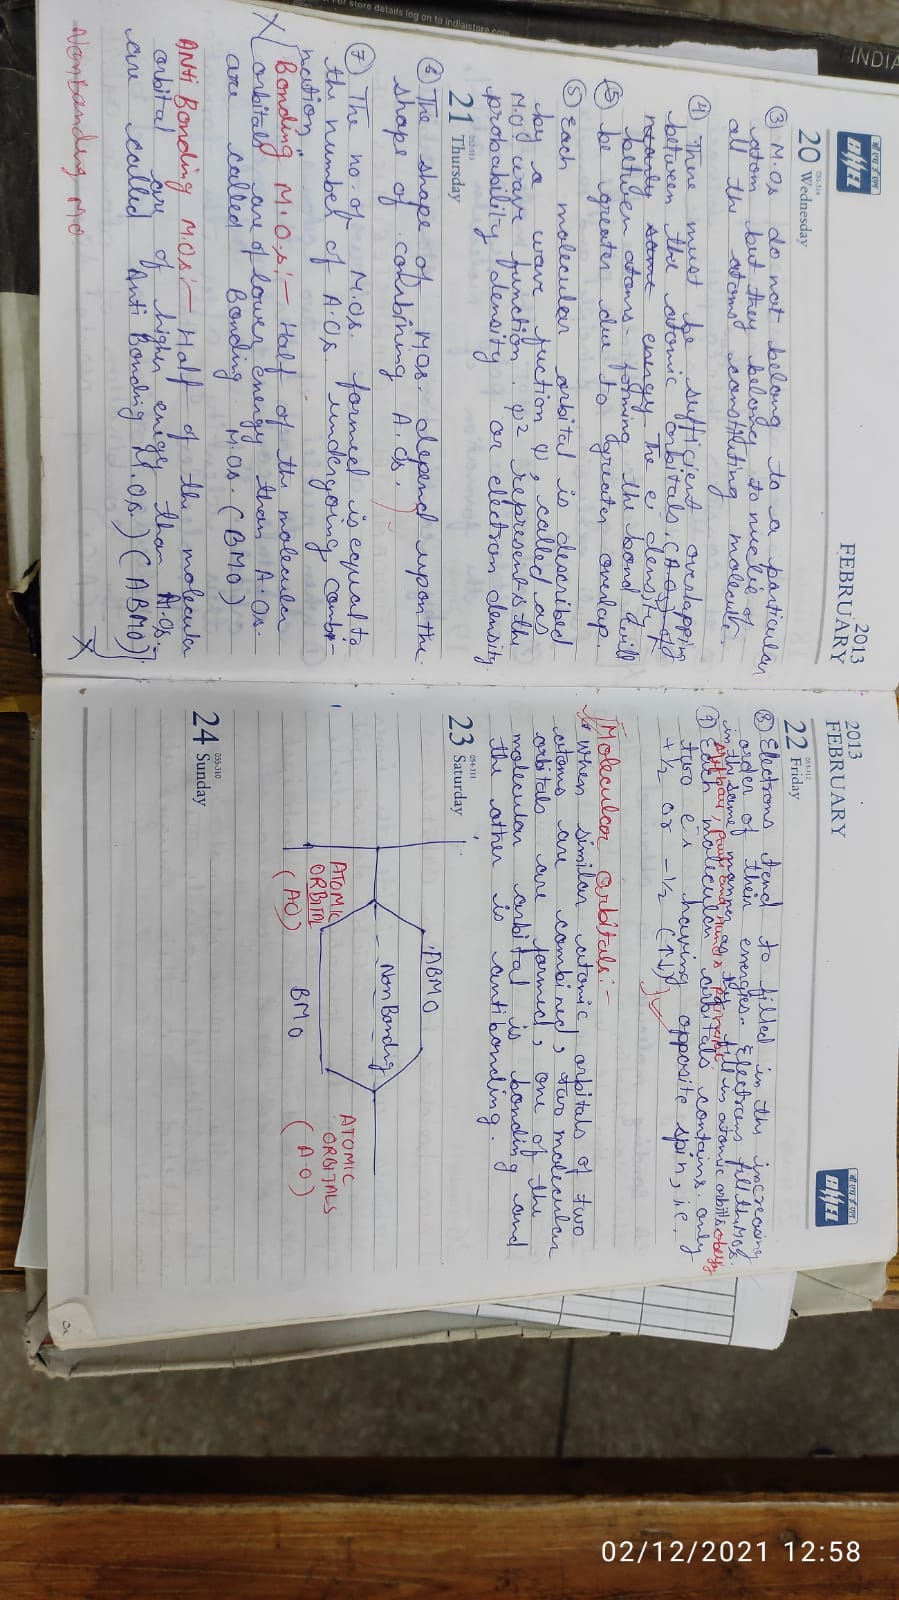 For store details log on to indiaistore.com
INDIA
2013
FEBRUARY
बीएचईएल
BHEL
20 Wednesday
051-314
③ M.Os do not belong to a particular
atom but they belong to nuclei of
all the atoms constituting molecule.
④ There must be sufficient overlapping
between the atomic orbitals (A.Os) of
nearly same energy. The e⁻ density
between atoms forming the bond will
⑤ be greater due to greater overlap.
⑤ Each molecular orbital is described
by a wave fuction ψ, called as
M.O wave function. ψ2 represents the
probability density or electron density
21 Thursday
052-313
⑥ The shape of MOs. depend upon the
shape of combining A.Os.
⑦ The no. of M.Os. formed is equal to
the number of A.Os undergoing combi-
nation.
X [Bonding M.O.s:- Half of the molecular
orbitals are of lower energy than A.Os.
are called Bonding M.Os. (BMO)
Anti Bonding M.Os:- Half of the molecular
orbital are of higher energy than A.Os.
are called Anti Bonding M.Os.) (ABMO)]
X
Nonbanding M.O
2013
FEBRUARY
बीएचईएल
BHEL
22 Friday
053-312
⑧ Electrons tend to filled in the increasing
order of their energies. Electrons fill the MOs.
in the same manner as they fill in atomic orbitls obeys
aufbau, pauli and hund's principle
⑨ Each molecular orbitals contains only
two e⁻s having opposite spin, i.e,
+ 1/2 or - 1/2 (↑↓)
Molecular orbitals:-
When similar atomic orbitals of two
atoms are combined, two molecular
orbitals are formed, one of the
molecular orbital is bonding and
the other is antibonding.
23 Saturday
054-311
ABMO
Non Bonding
ATOMIC
ORBITAL
(AO)
BMO
ATOMIC
ORBITALS
(AO)
24 Sunday
055-310
02/12/2021 12:58